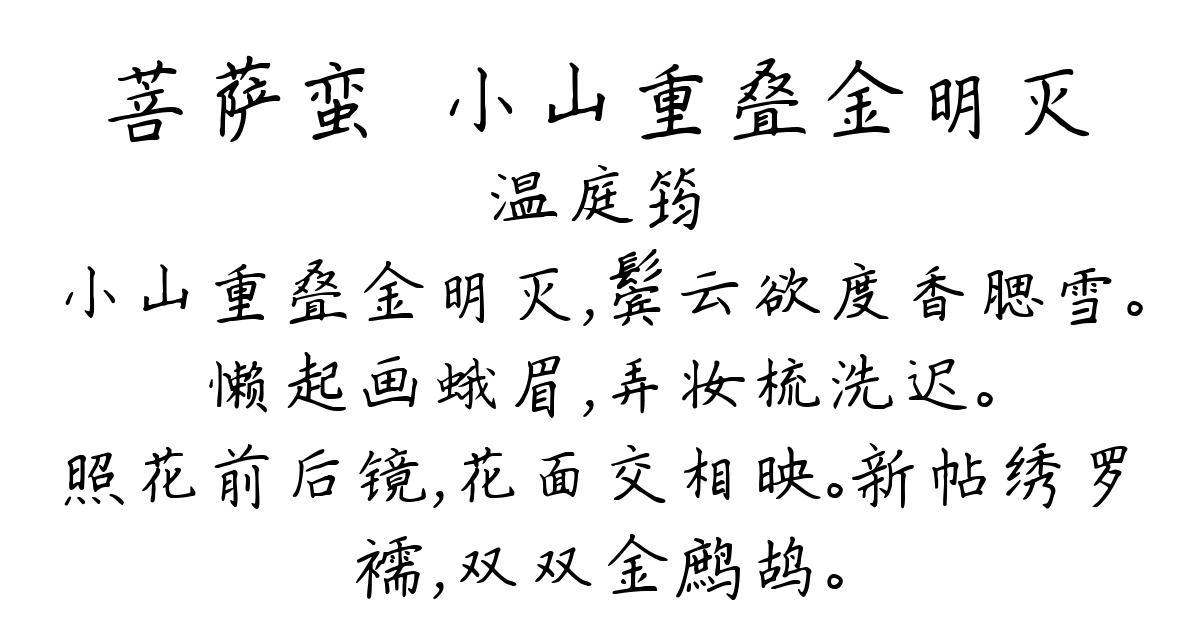 菩萨蛮 小山重叠金明灭
温庭筠
小山重叠金明灭,鬓云欲度香腮雪。
懒起画蛾眉,弄妆梳洗迟。
照花前后镜,花面交相映。新帖绣罗
襦,双双金鹧鸪。